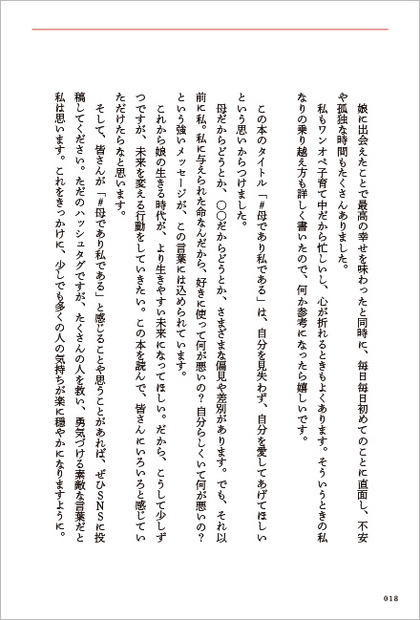 娘に出会えたことで最高の幸せを味わったと同時に、毎日毎日初めてのことに直面し、不安
や孤独な時間もたくさんありました。
私もワンオペ子育て中だから忙しいし、心が折れるときもよくあります。そういうときの私
なりの乗り越え方も詳しく書いたので、何か参考になったら嬉しいです。
この本のタイトル「#母であり私である」は、自分を見失わず、自分を愛してあげてほしい
という思いからつけました。
母だからどうとか、〇〇だからどうとか、さまざまな偏見や差別があります。でも、それ以
前に私。私に与えられた命なんだから、好きに使って何が悪いの？自分らしくいて何が悪いの？
という強いメッセージが、この言葉には込められています。
これから娘の生きる時代が、より生きやすい未来になってほしい。だから、こうして少しず
つですが、未来を変える行動をしていきたい。この本を読んで、皆さんにいろいろと感じてい
ただけたらなと思います。
そして、皆さんが「#母であり私である」と感じることや思うことがあれば、ぜひSNSに投
稿してください。ただのハッシュタグですが、たくさんの人を救い、勇気づける素敵な言葉だと
私は思います。これをきっかけに、少しでも多くの人の気持ちが楽に穏やかになりますように。
018